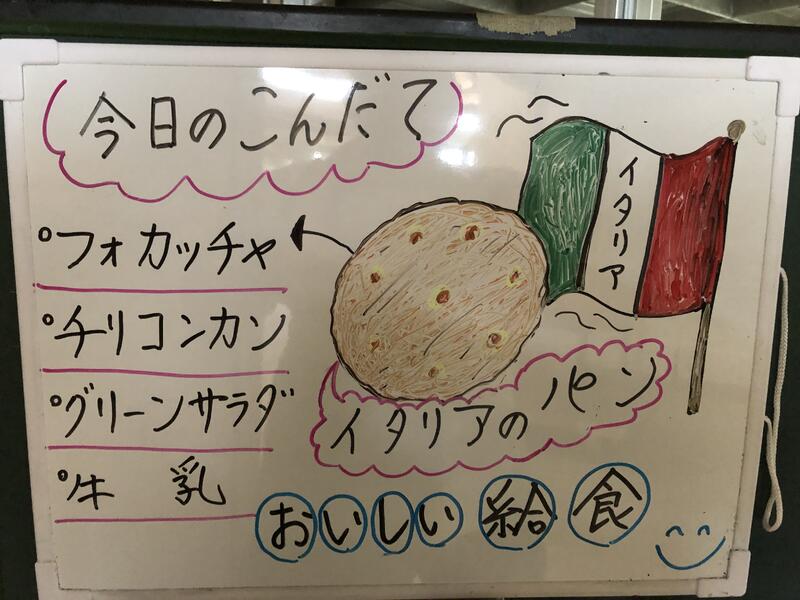 今日のこんだて
フォカッチャ
チリコンカン
グリーンサラダ
牛乳
イタリア
イタリアのパン
おいしい給食